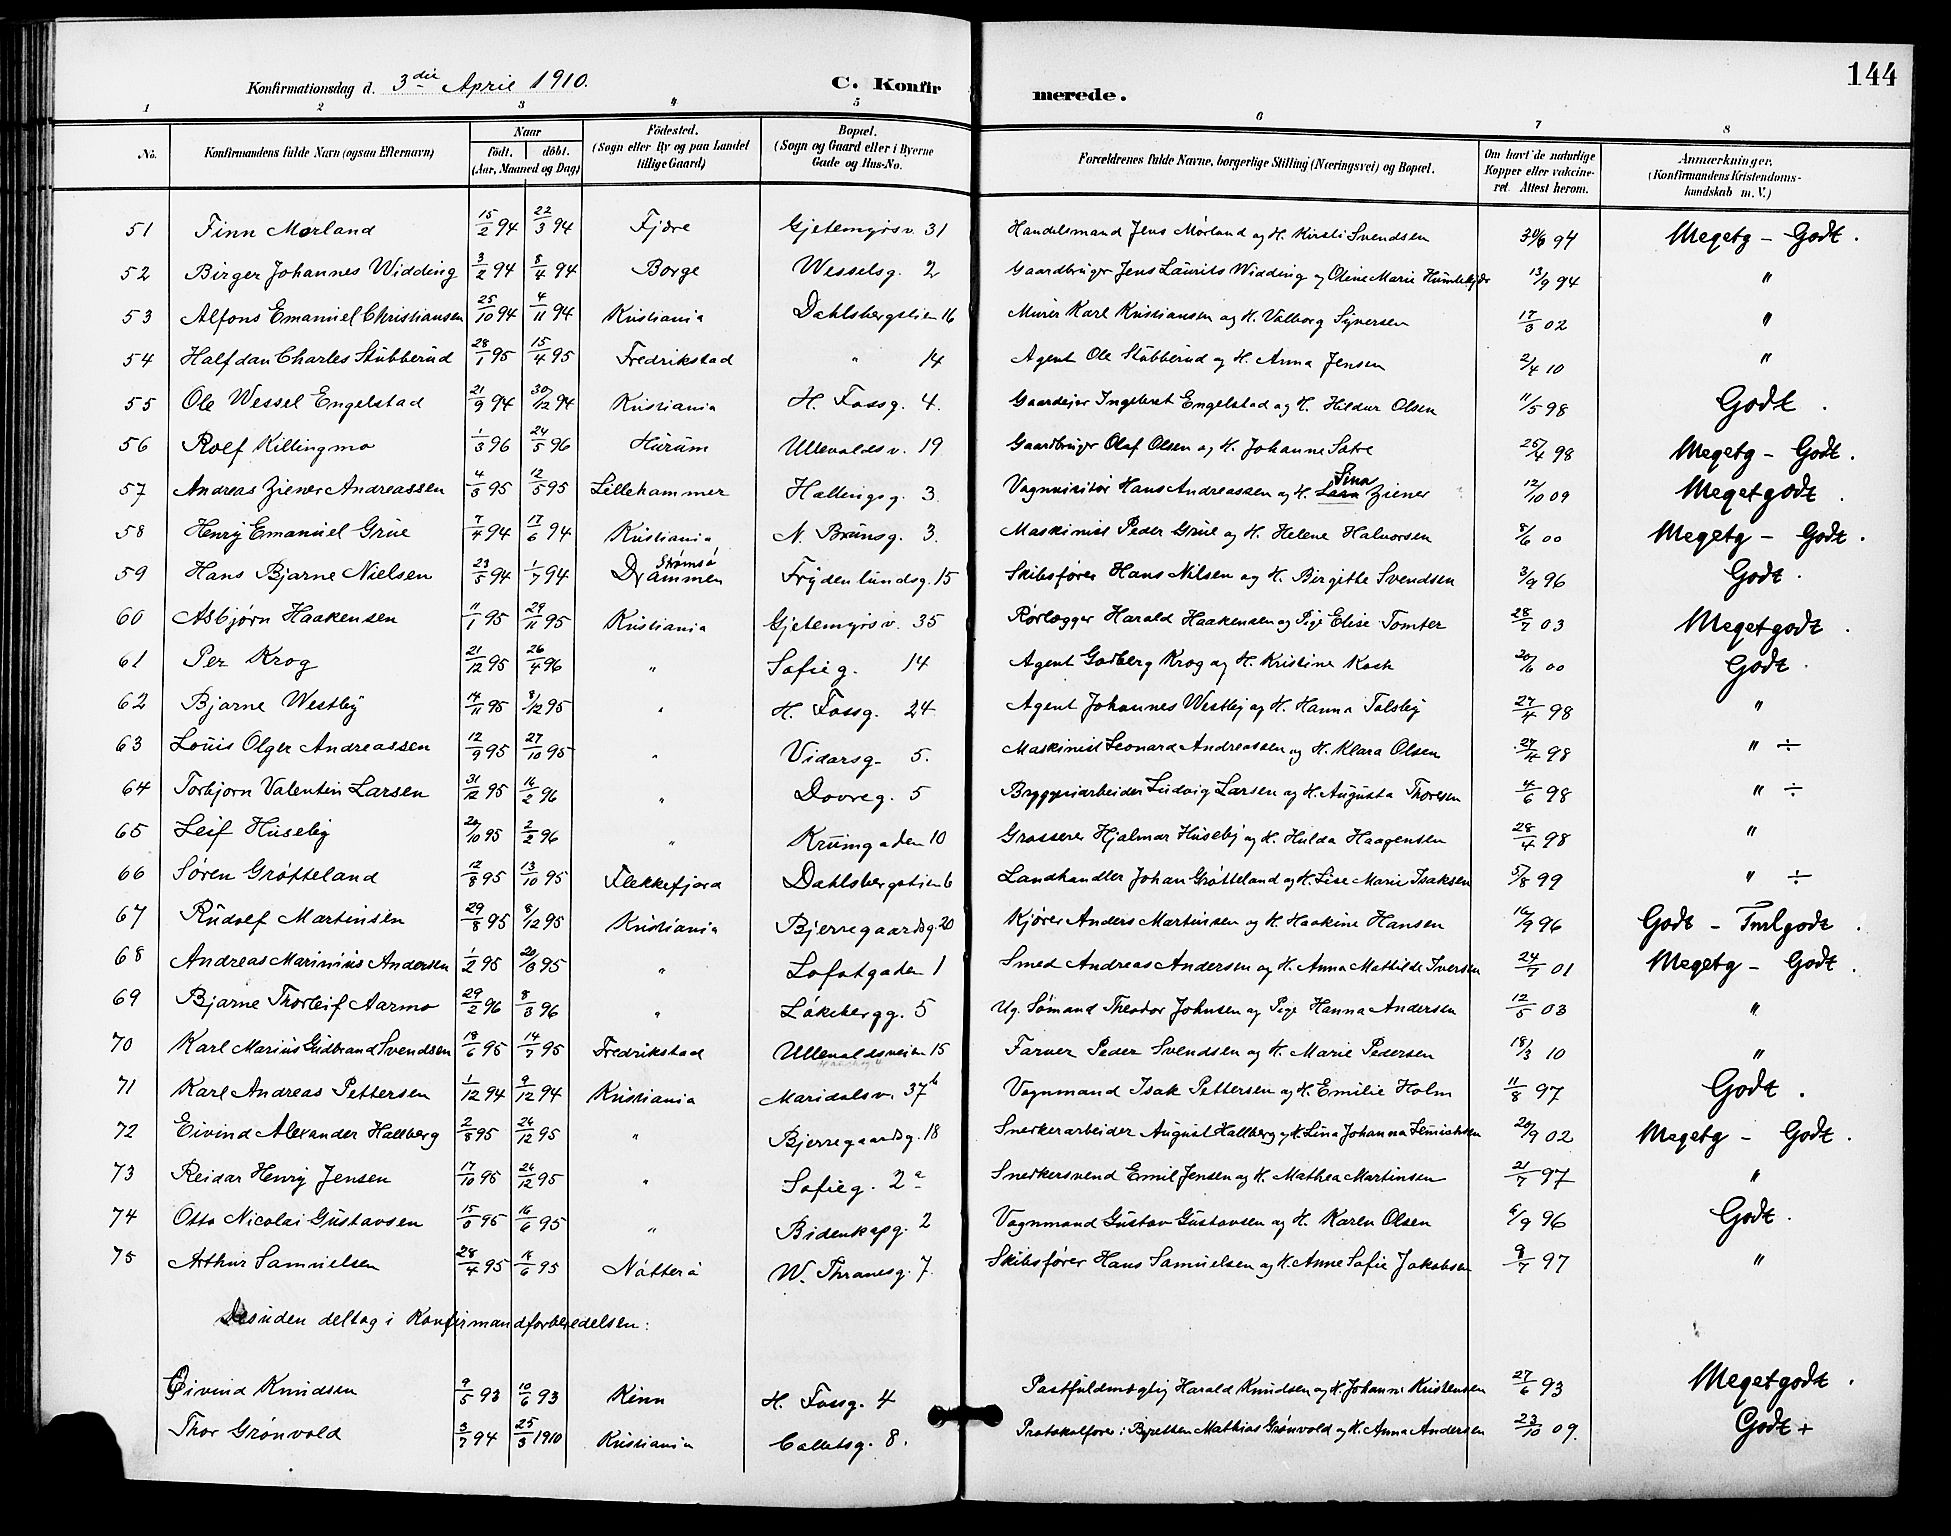 144
Konfirmationsdag d. 3die April 1910. C. Konfirmerede.
1 2 3 4 5 6 7 8
No. Konfirmandens fulde Navn (ogsaa Efternavn) Naar født, døbt. (Aar, Maaned og Dag) Fødested. (Sogn eller By og paa Landet tillige Gaard) Bopæl. (Sogn og Gaard eller i Byerne Gade og Hus-No. Forældrenes fulde Navne, borgerlige Stilling (Næringsvei) og Bopæl. Om havt de naturlige Kopper eller vakcineret. Attest herom. Anmærkninger. (Konfirmandens Kristendomskundskab m. V.)
51 Finn Mørland 15/2 94 22/3 94 Fjære Gjetemyrsv. 31 Handelsmand Jens Mørland og H. Kirsti Svendsen 30/6 94 Megetg - Godt.
52 Birger Johannes Widding 3/2 94 8/4 94 Borge Wesselsg. 2 Gaardbruger Jens Laurits Widding og Oline Marie 13/9 94 "
53 Alfons Emanuel Christiansen 25/10 94 4/11 94 Kristiania Dahlsbergstien 16 Murer Karl Kristiansen og H. Valborg Syversen 17/3 02 "
54 Halfdan Charles Stubberud 28/1 95 15/4 95 Fredrikstad " 14 Agent Ole Stubberud og H. Anna Jensen 2/4 10 "
55 Ole Wessel Engelstad 21/9 94 30/12 94 Kristiania H. Fossg. 4. Gaardejer Ingebret Engelstad og H. Hildur Olsen 11/5 98 Godt.
56 Rolf Killingmo 1/3 96 24/5 96 Hurum Ullevoldsv. 19 Gaardbruger Olaf Olsen og H. Johanne Satre 25/4 98 Megetg - Godt.
57 Andreas Ziener Andreassen 4/3 95 12/5 95 Lillehammer Hallingsg. 3. Vognvisitør Hans Andreassen og H. Lara Sina Ziener 12/10 09 Megetgodt.
58 Henry Emanuel Grue 7/4 94 17/6 94 Kristiania N. Brunsg. 3. Maskinist Peder Grue og H. Helene Halvorsen 8/6 00 Megetg - Godt.
59 Hans Bjarne Nielsen 23/5 94 1/7 94 Strømsø Drammen Frydenlundsg. 15 Skibsfører Hans Nilsen og H. Birgitte Svendsen 3/9 96 Godt.
60 Asbjørn Haakensen 11/1 95 29/11 95 Kristiania Gjetemyrsv. 35 Rørlægger Harald Haakensen og Pige Elise Tomter 28/7 03 Megetgodt.
61 Per Krog 21/12 95 26/4 96 " Sofieg. 14 Agent Godberg Krog og H. Kristine Koch 20/6 00 Godt.
62 Bjarne Westby 14/11 95 8/12 95 " H. Fossg. 24 Agent Johannes Westby og H. Hanna Tolsby 27/4 98 "
63 Louis Olger Andreassen 12/9 95 27/10 95 " Vidarsg. 5. Maskinist Leonard Andreassen og H. Klara Olsen 27/4 98 " ÷
64 Torbjørn Valentin Larsen 31/12 95 16/2 96 " Dovreg. 5 Bryggeriarbeider Ludvig Larsen og H. Augusta Thoresen 4/6 98 " ÷
65 Leif Huseby 20/10 95 2/2 96 " Krumgaden 10 Grosserer Hjalmar Huseby og H. Hulda Haagensen 28/4 98 "
66 Søren Grøtteland 12/8 95 13/10 95 Flekkefjord Dahlsbergstien 6 Landhandler Johan Grøtteland og H. Lise Marie Isaksen 5/8 99 " ÷
67 Rudolf Martinsen 29/8 95 8/12 95 Kristiania Bjerregaardsg. 20 Kjører Anders Martinsen og H. Haakine Hansen 16/9 96 Godt - Tmlgodt.
68 Andreas Marinius Andersen 1/2 95 20/3 95 " Lofotgaden 1 Smed Andreas Andersen og H. Anna Mathilde Iversen 24/7 01 Megetg - Godt.
69 Bjarne Thorleif Aarmo 29/2 96 8/3 96 " Løkebergg. 5 Ug. Sømand Theodor Johnsen og Pige Hanna Andersen 12/5 03 "
70 Karl Marius Gudbrand Svendsen 18/6 95 14/7 95 Fredrikstad Ullevoldsveien 15 Farver Peder Svendsen og H. Marie Pedersen 18/3 10 "
71 Karl Andreas Pettersen 1/12 94 9/12 94 Kristiania Maridalsv. 37b Vognmand Isak Pettersen og H. Emilie Holm 11/8 97 Godt.
72 Eivind Alexander Hallberg 2/8 95 26/12 95 " Bjerregaardsg. 18 Snekkerarbeider August Hallberg og H. Lina Johanna 20/9 02 Megetg - Godt.
73 Reidar Henry Jensen 17/10 95 26/12 95 " Sofieg. 2a Snekkersvend Emil Jensen og H. Mathea Martinsen 21/7 97 "
74 Otto Nicolai Gustavsen 15/3 95 16/6 95 " Bidenkapg. 2 Vognmand Gustav Gustavsen og H. Karen Olsen 6/9 96 Godt.
75 Arthur Samuelsen 28/4 95 16/6 95 Nøtterø W. Thranesg. 7. Skibsfører Hans Samuelsen og H. Anne Sofie Jakobsen 9/7 97 "
Desuden deltog i Konfirmandforberedelsen:
Eivind Knudsen 9/5 93 10/6 93 Kinn H. Fossg. 4 Postfuldmægtig Harald Knudsen og H. Johanne Kristensen 27/6 93 Megetgodt.
Thor Grønvold 3/7 94 25/3 1910 Kristiania Colletsg. 8. Protokolfører i Byretten Mathias Grønvold og H. Anna Andersen 23/10 09. Godt +